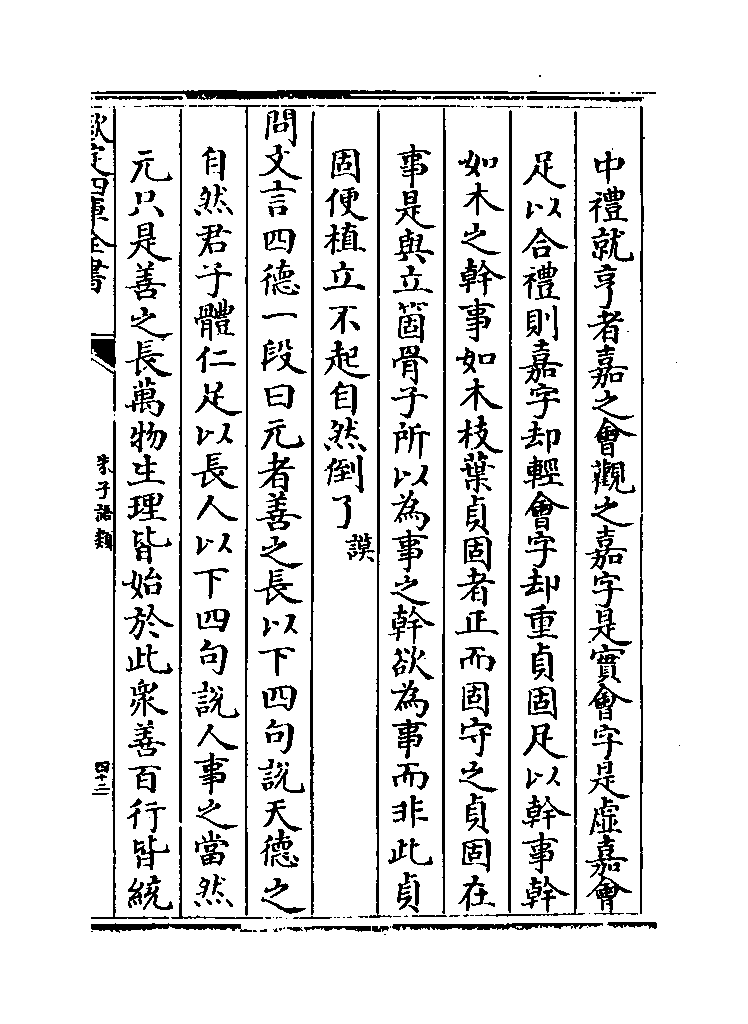 中禮就亨者嘉之會觀之嘉字是實會字是虛嘉會
足以合禮則嘉字却輕會字却重貞固足以幹事幹
如木之幹事如木枝葉貞固者正而固守之貞固在
事是與立箇骨子所以為事之幹欲為事而非此貞
固便植立不起自然倒了謨
問文言四德一段曰元者善之長以下四句說天德之
自然君子體仁足以長人以下四句說人事之當然
元只是善之長萬物生理皆始於此衆善百行皆統
欽定四庫全書
朱子語類
四十三